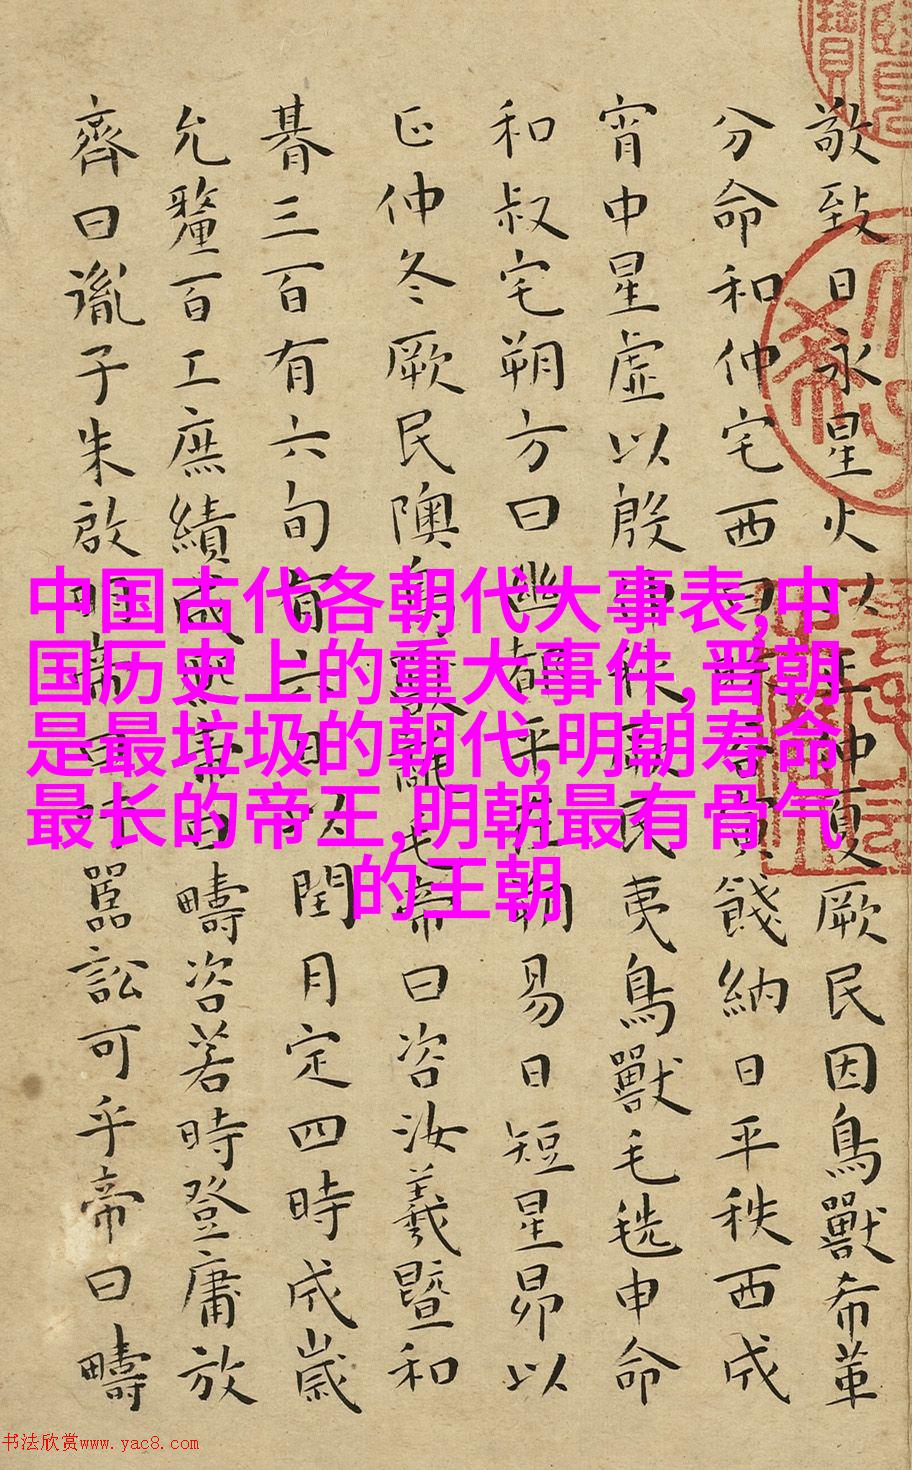 敬致日永星火以正仲夏厥民因鳥獸希革
分命和仲宅西曰昧谷寅餞納日平秩西成
宵中星虛以殷仲秋厥民夷鳥獸毛毨申命
和叔宅朔方曰幽都平在朔易日短星昴以
正仲冬厥民隩鳥獸氄毛帝曰咨汝羲暨和
朞三百有六旬有六日以閏月定四時成歲
允釐百工庶績咸熙帝曰疇咨若時登庸放
齊曰胤子朱啟明帝曰吁嚚訟可乎帝曰疇
中国古代各朝代大事表,中
国历史上的重大事件,晋朝
是最垃圾的朝代,明朝寿命
最长的帝王,明朝最有骨气
的王朝
书法欣赏www.yac8.com